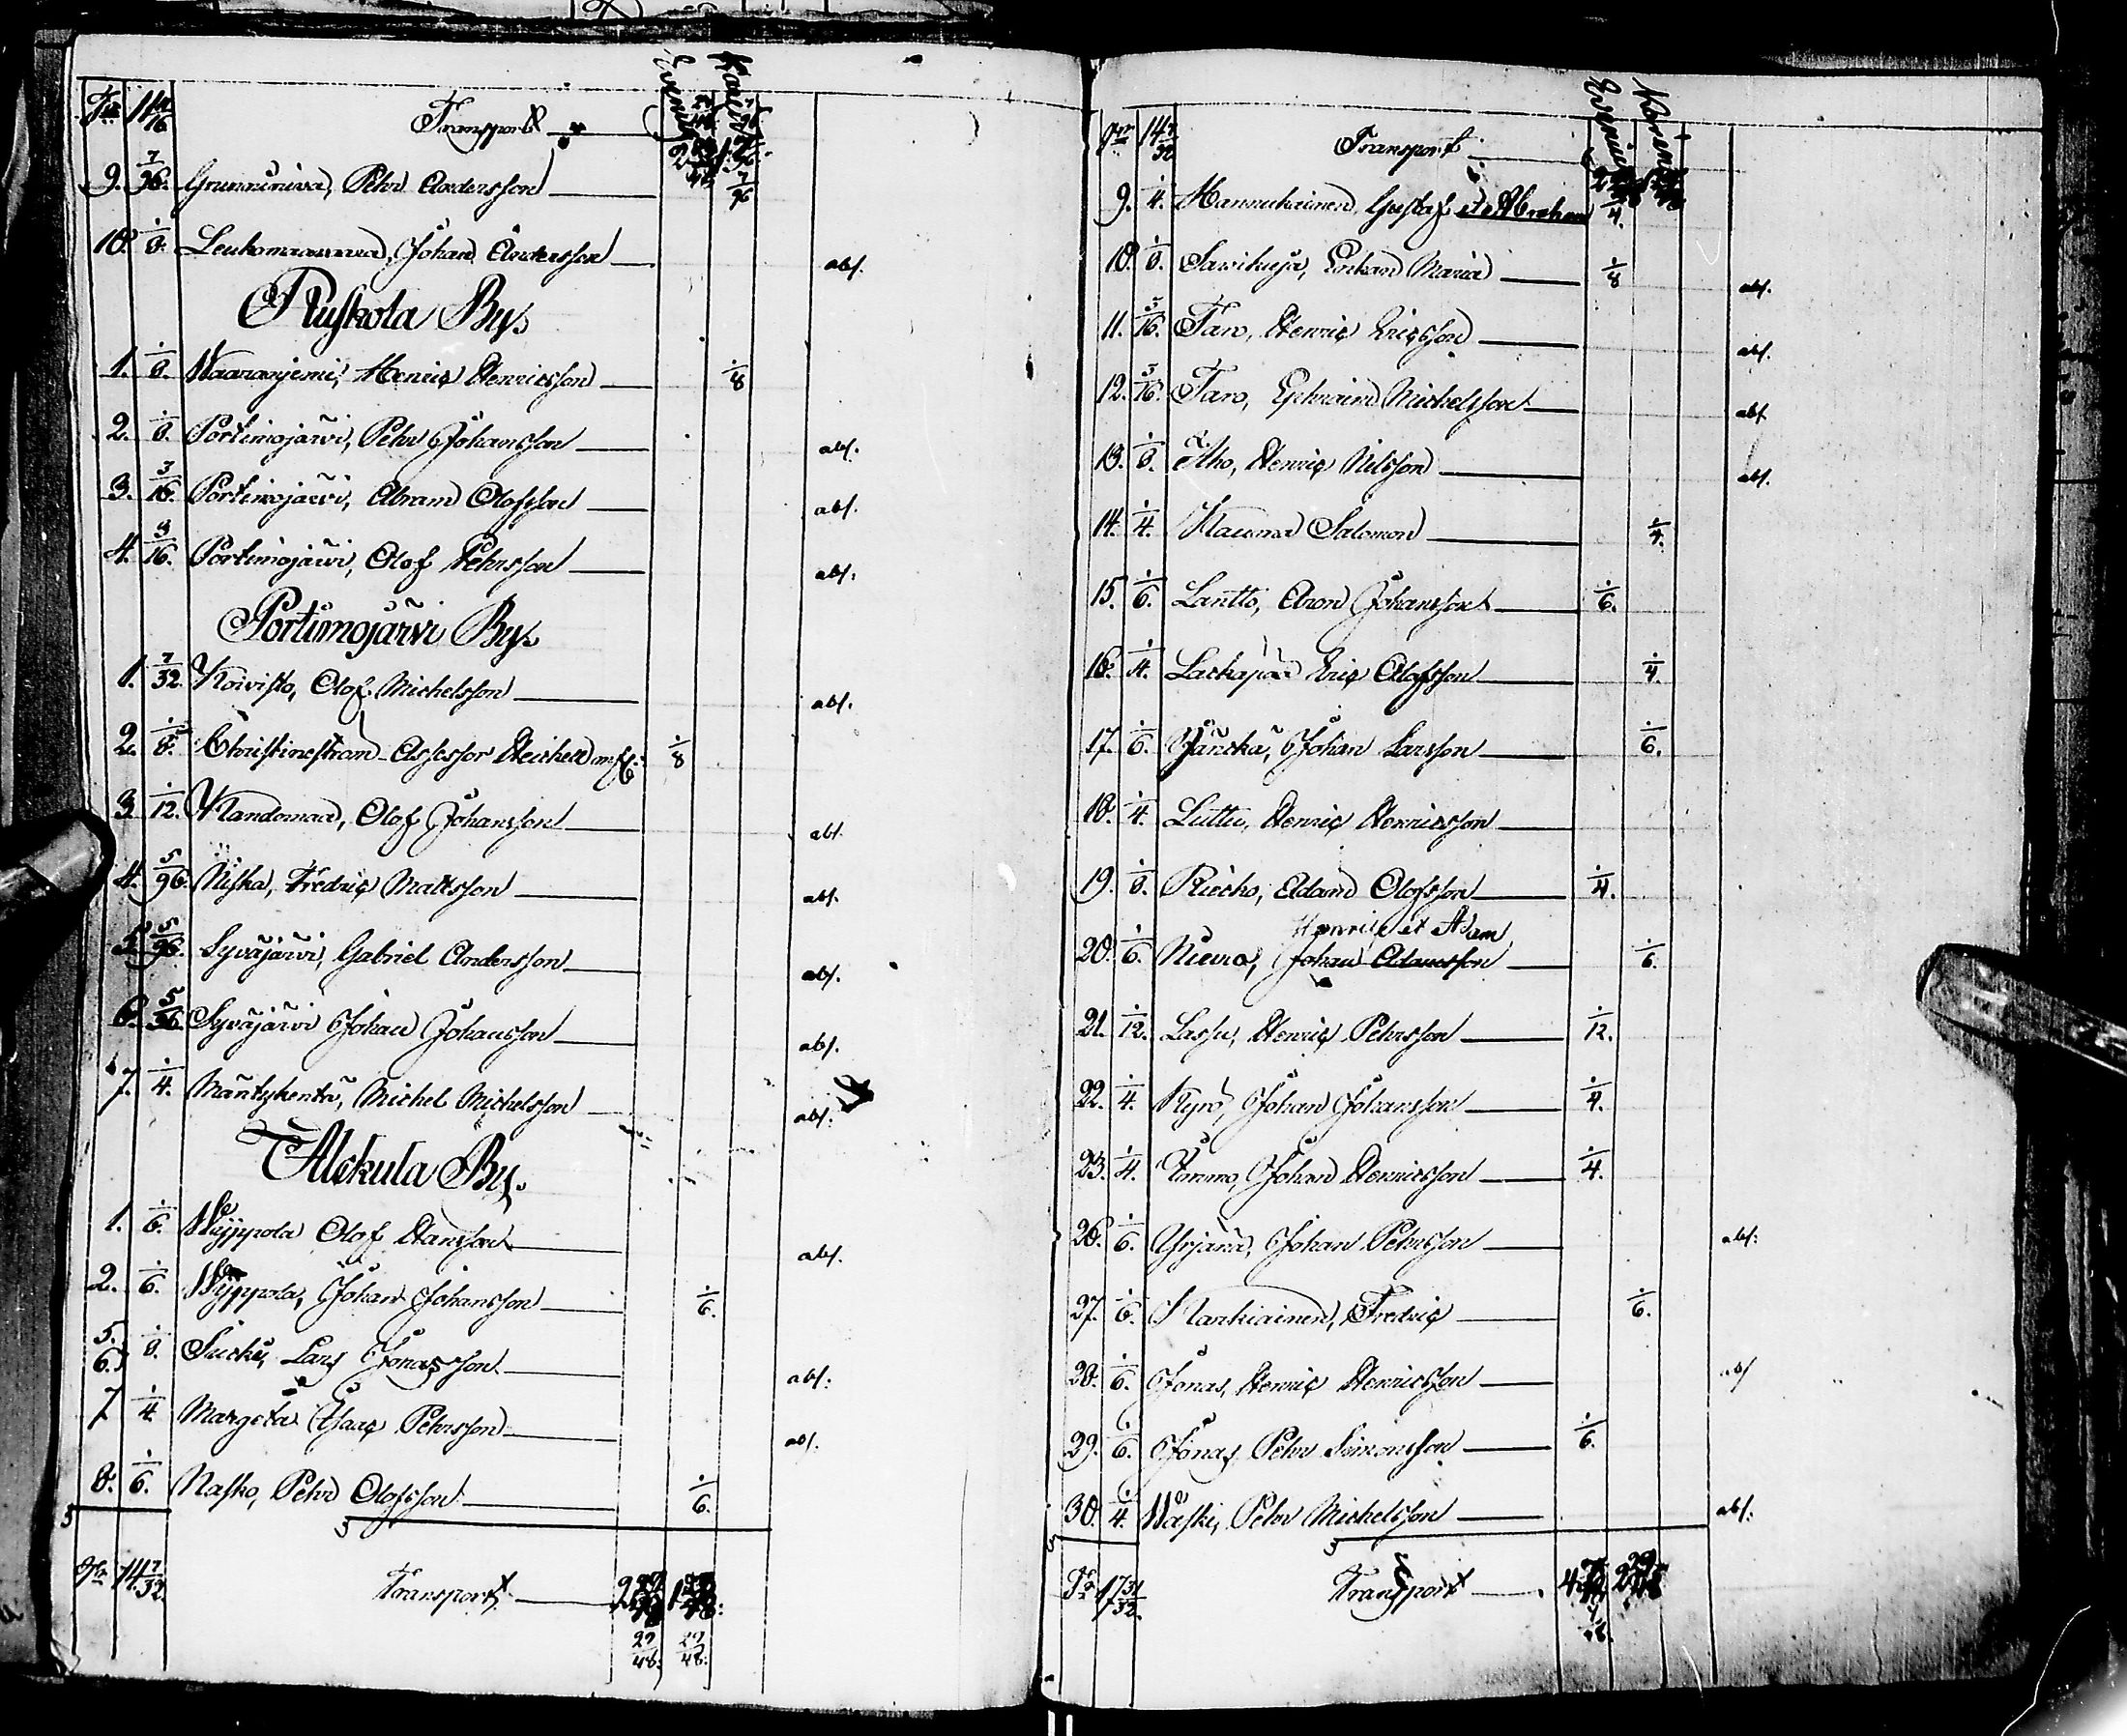 Transport
9. 7/96. Grunniniva, Pehr Andersson
10. 1/8. Leukomaanvaara, Johan Andersson abs.
Ruskola By.
1. 1/8. Waaraniemi, Henric Henricsson 1/8
2. 1/8. Portimojärvi, Pehr Johansson abs.
3. 3/16. Portimojärvi, Abram Olofsson abs.
4. 3/16. Portimojärvi, Olof Pehrsson abs.
Portimojärvi By.
1. 7/32. Koivisto, Olof Michelsson abs.
2. 1/8. Christinestram Assessor 1/8
3. 1/12. Kandomaa, Olof Johansson abs.
4. 5/96. Niska, Fredric Mattsson abs.
5. 5/96. Syväjärvi, Gabriel Andersson abs.
6. 5/36. Syväjärvi Johan Johansson abs.
7. 1/4. Mäntykenta, Michel Michelsson abs.
Alckula By.
1. 1/6. Wyppola Olof Hansson abs.
2. 1/6. Wyppola, Johan Johansson 1/6.
5. 6. 1/8. Sucki, Lars Jonasson abs.
7 1/4. Margeta Isaac Pehrsson abs.
8. 1/6. Nasko, Pehr Olofsson 1/6.
14 7/32. Transport
29/48. 29/48.
14 7/32 Transport
9. 1/4. Hannukainen, Gustaf et Abraham 1/4.
10. 1/8. Savikuja, Enkan Maria 1/8 abs.
11. 3/16. Taro, Henric Ericsson abs.
12. 3/16. Taro, Ephraim Michelsson abs.
13. 1/8. Aho, Henric Nilsson abs.
14. 1/4. Kauma Salomon 1/4.
15. 1/6. Lantto, Aron Johansson 1/6.
16. 1/4. Lackapää Eric Olofsson 1/4.
17. 1/6. Jänckä, Johan Larsson 1/6.
18. 1/4. Luttu, Henric Henricsson
19. 1/8. Riecho, Adam Olofsson 1/4.
Henric et Adam
20. 1/6. Niura, Johan Adamsson 1/6.
21. 1/12. Lassu, Henric Pehrsson 1/12.
22. 1/4. Kyrö, Johan Johansson 1/4.
23. 1/4. Timmo, Johan Henricsson 1/4.
26. 1/6. Yrjänä, Johan Pehrsson abs.
27. 1/6. Kankiainen, Fredric 1/6.
28. 1/6. Jonas, Henric Henricsson abs
29. 1/6. Jonas Pehr Simonsson 1/6.
30. 1/4. Waski, Pehr Michelsson abs.
17 31/32. Transport